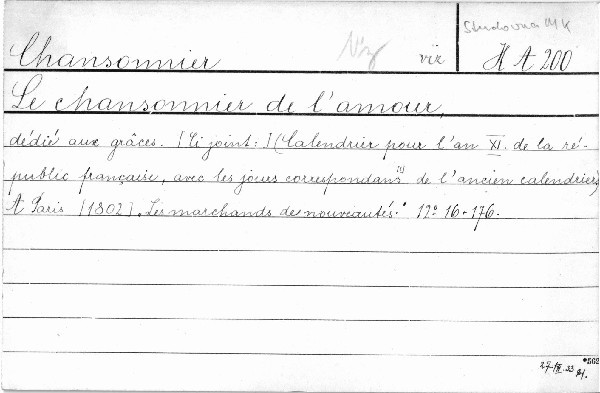 Studovna MK
Chansonnier Viz viz H A 200
Le chansonnier de l'amour,
dédié aux grâces. [Ci joint:] (Calendrier pour l'an XI. de la ré-
public française, avec les jours correspondans (!) de l'ancien calendrier)
A Paris [1802]. Les marchands de nouveautés. 12° 16+176.
*562